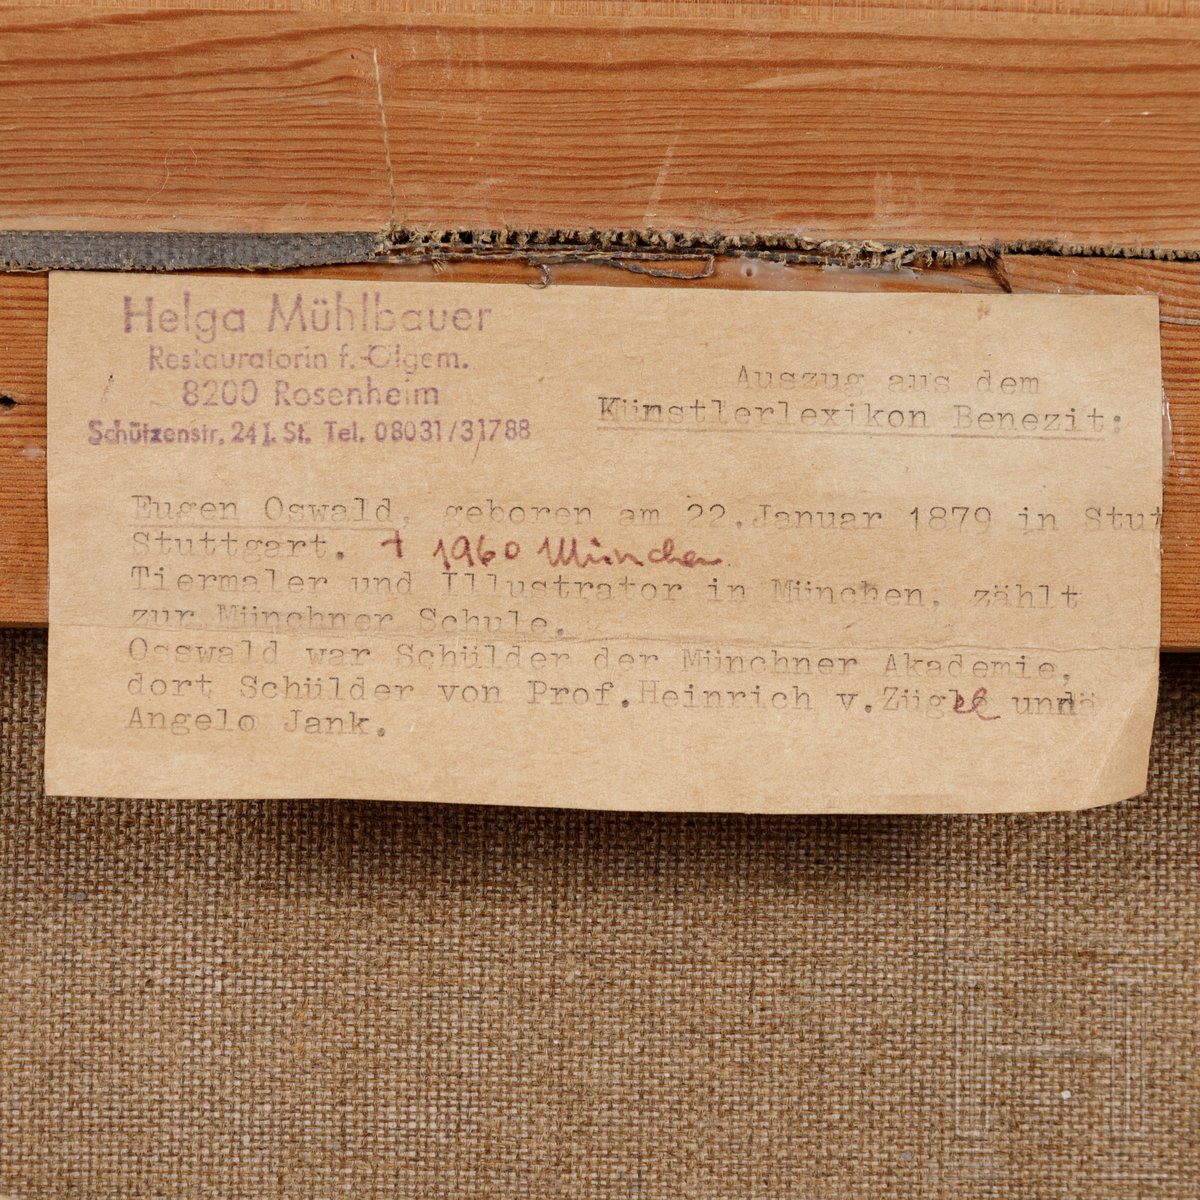 Helga Mühlbauer
Restauratorin f. Ölgem.
8200 Rosenheim
Schützenstr. 24 I. St. Tel. 08031/31788
Auszug aus dem
Künstlerlexikon Benezit:
Eugen Oswald, geboren am 22.Januar 1879 in Stut
Stuttgart. † 1960 München
Tiermaler und Illustrator in München, zählt
zur Münchner Schule.
Osswald war Schüilder der Münchner Akademie,
dort Schüilder von Prof.Heinrich v.Zügel und
Angelo Jank.